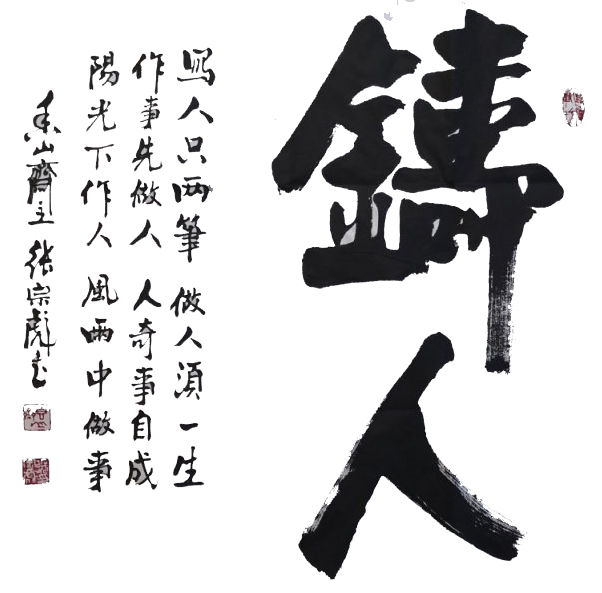 鑄人
寫人只兩筆 做人須一生
作事先做人 人奇事自成
陽光下作人 風雨中做事
香山齋主 張宗彪書